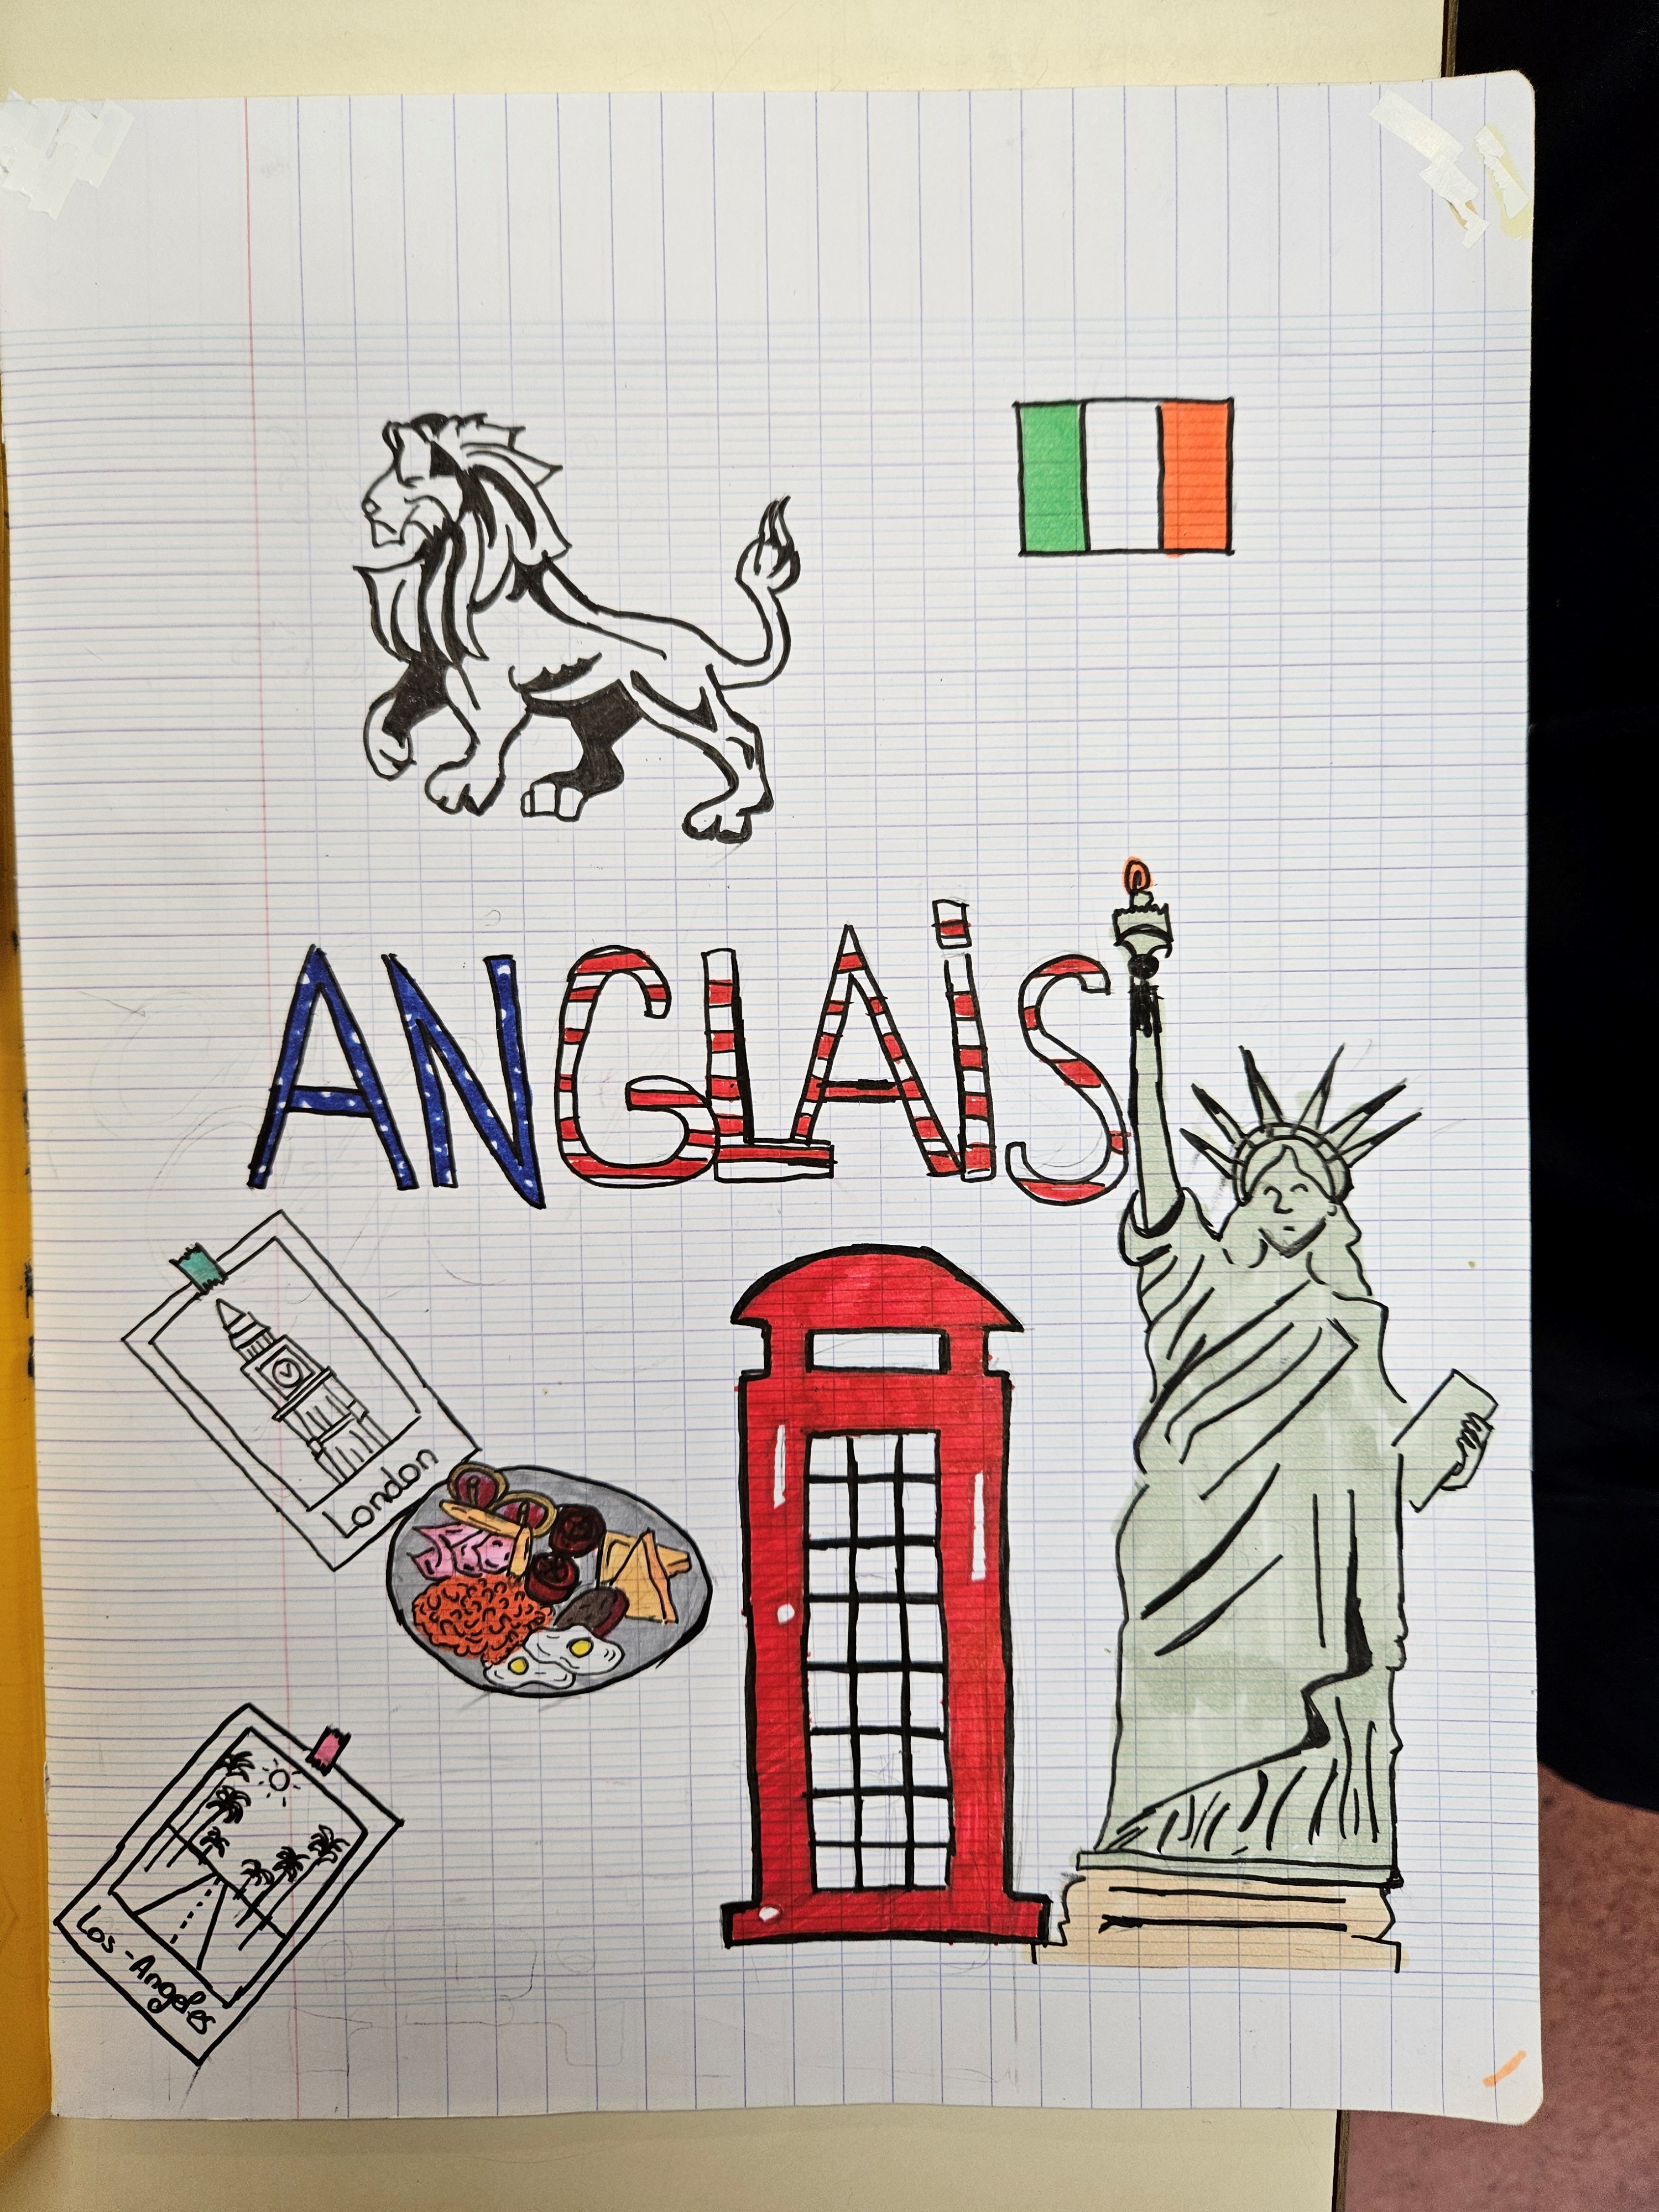 ANGLAiS
London
Los-Angeles